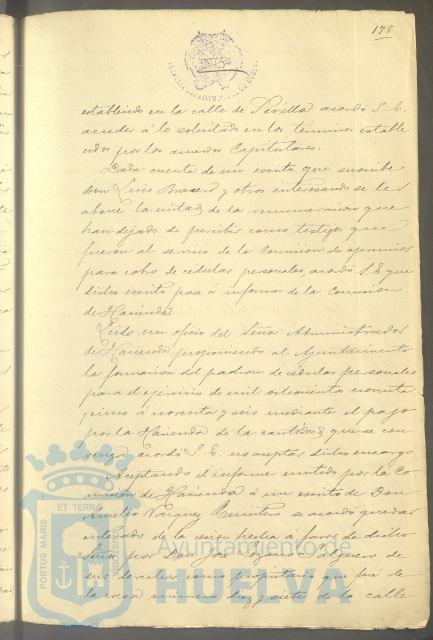 178
establecido en la calle de Sevilla acordó S. E.
acceder á lo solicitado en los términos estable
cidos por los acuerdos Capitulares.
Dada cuenta de un escrito que suscribe
Don Luis y otros interesando se les
abone la mitad de la remuneracion que
han dejado de percibir como testigos que
fueron al servicio de la Comision de apremios
para cobro de cédulas personales, acordó S. E. que
dicho escrito pase á informe de la Comision
de Hacienda.
Leido un oficio del Señor Administrador
de Hacienda proponiendo al Ayuntamiento
la formacion del padron de cédulas personales
para el ejercicio de mil ochocientos noventa
y cinco á noventa y seis mediante el pago
por la Hacienda de la cantidad que se con
venga acordó S. E. no aceptar dicho encargo
Aceptando el informe emitido por la Co
mision de Hacienda á un escrito de Don
Aurelio Vazquez se acordó quedar
enterado de la cesion hecha á favor de dicho
Señor por Don José
de sus derechos como propietario que fué de
la casa número diez y siete de la calle
PORTUS MARIS
ET TERRÆ
CUSTODIA
Ayuntamiento de
HUELVA